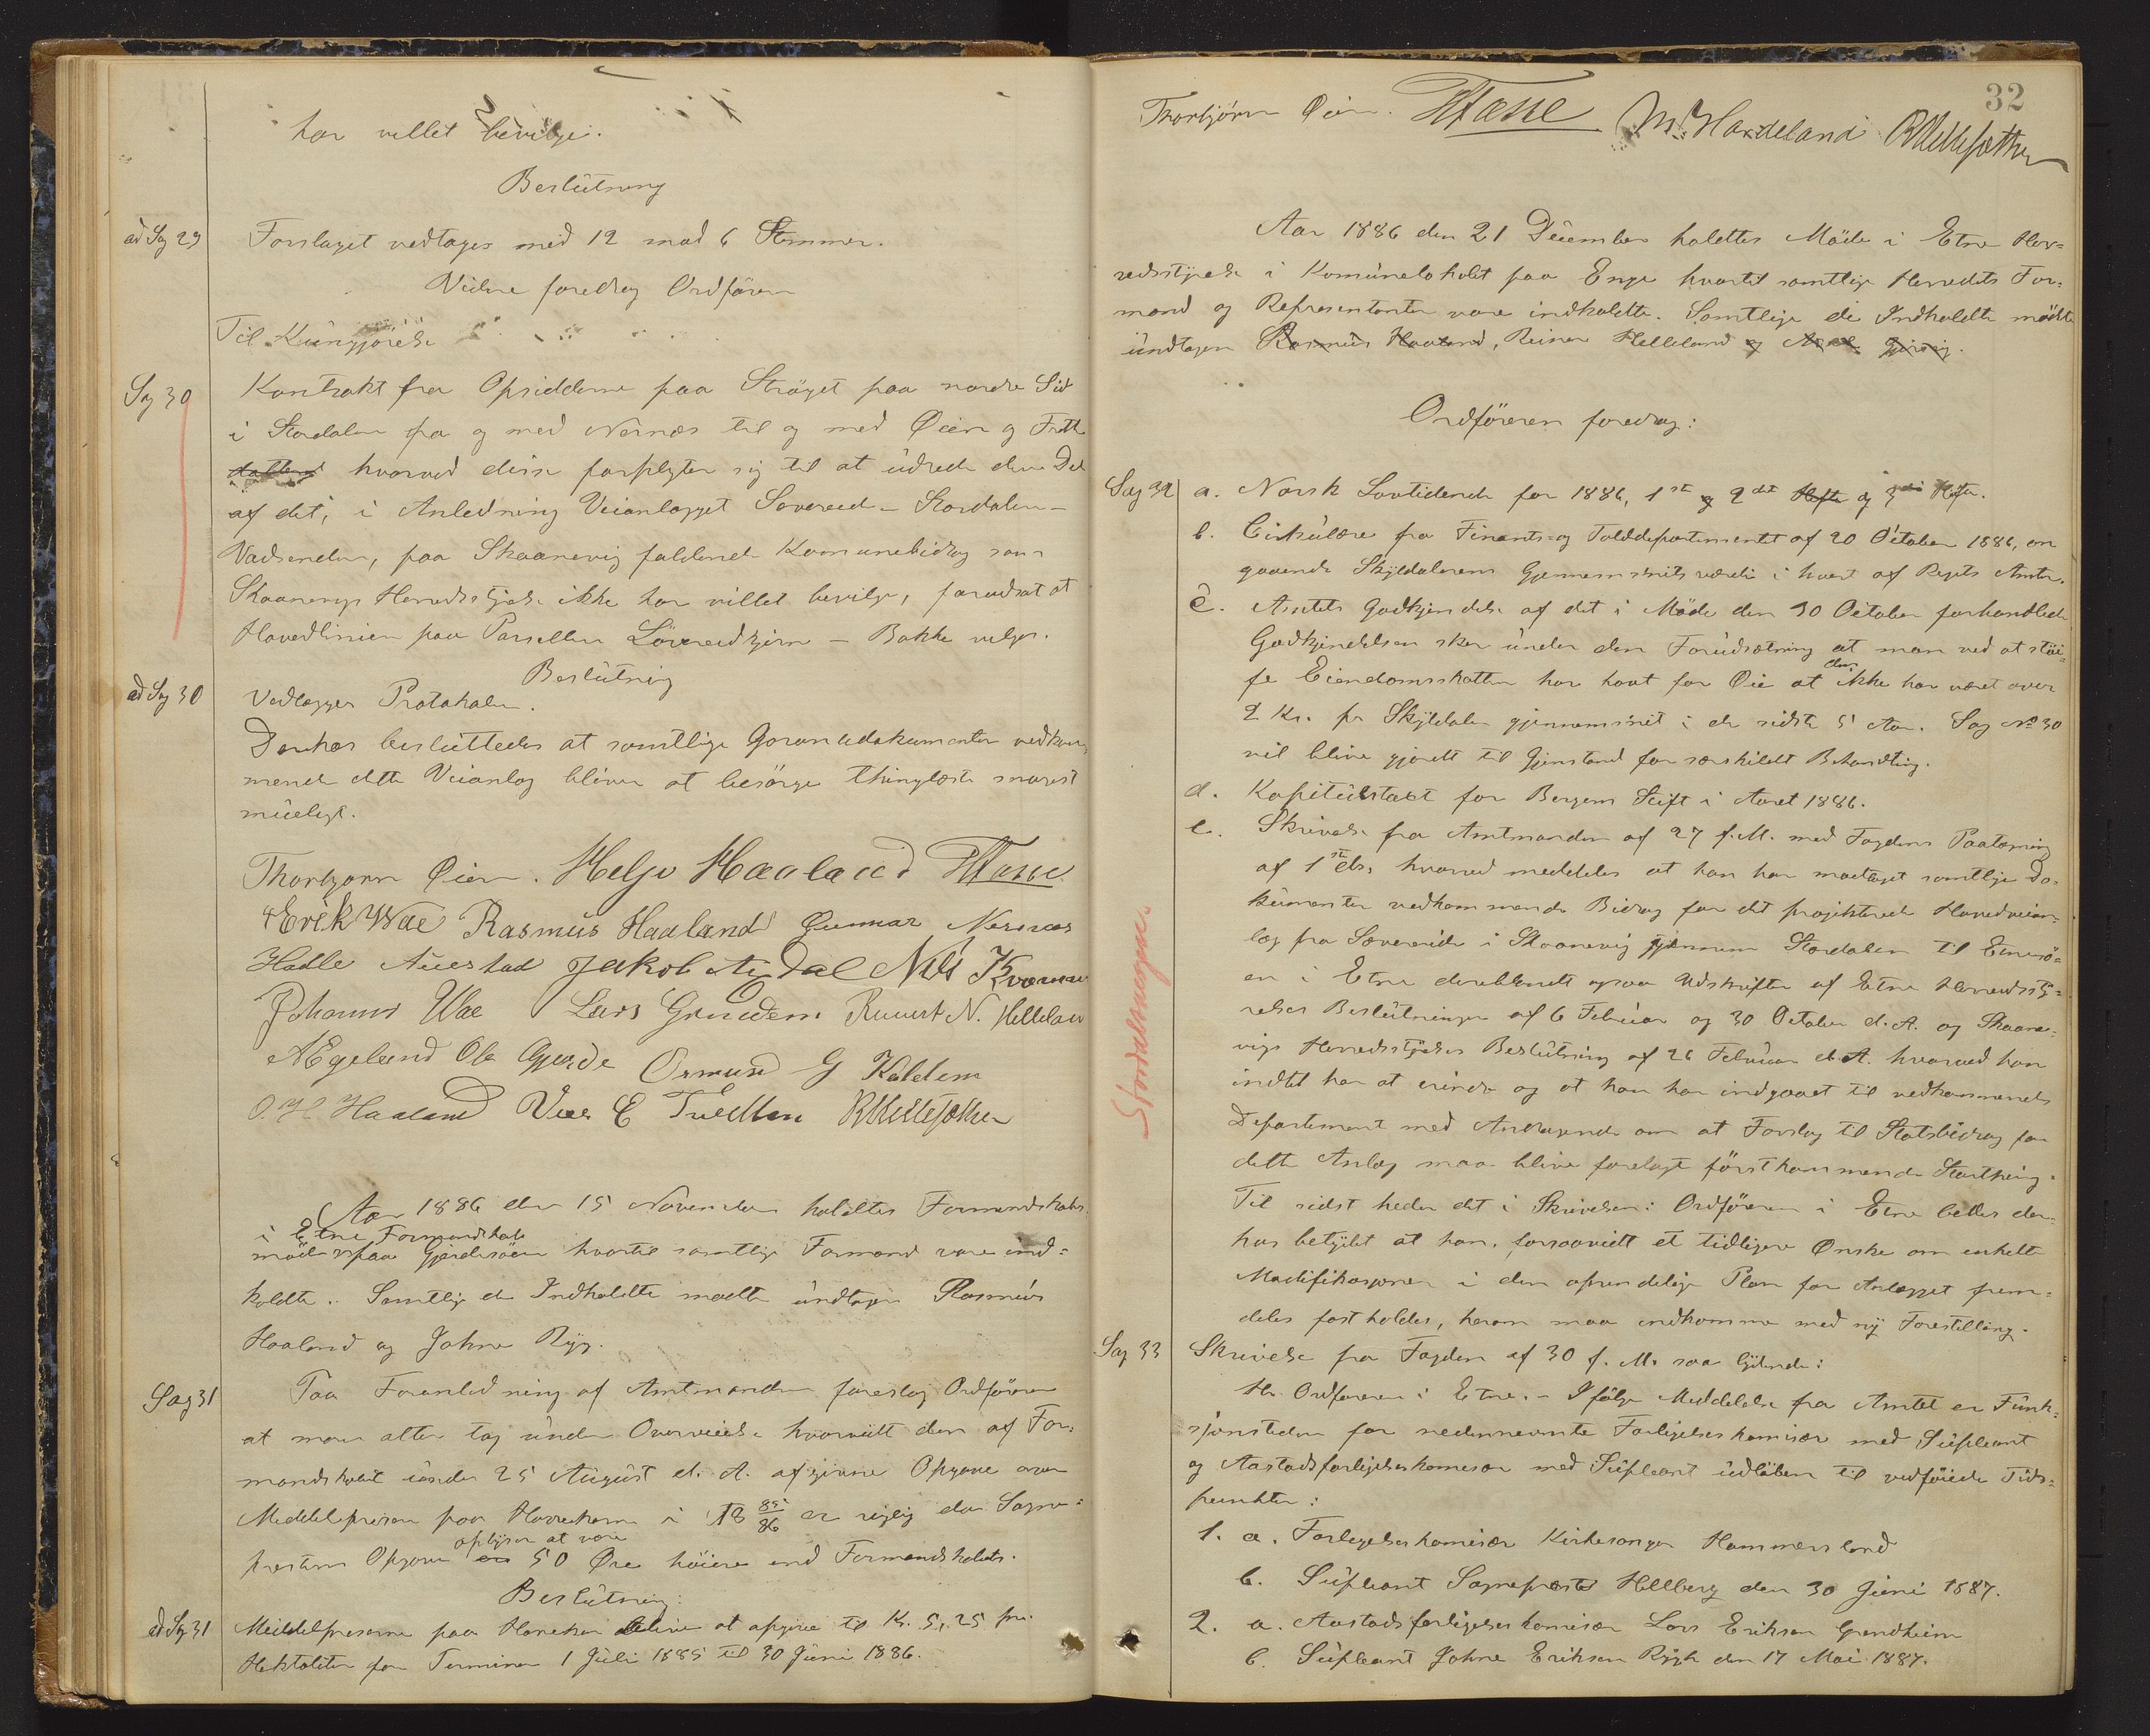 har villet bevilge.
Beslutning
ad Sag 29 Forslaget vedtages med 12 mod 6 Stemmer.
Videre foredrog Ordföreren
Til Kungjörelse
Sag 30 Kontrakt fra Opsidderne paa Ströget paa nordre Side
i Stordalen fra og med Nernæs til og med Øien og Frette
hvorved disse forpligter sig til at udrede den Del
af det, i Anledning Veianlægget Sævereid - Stordalen -
Vadsenden, paa Skaanevig faldende Komunebidrag som
Skaanevigs Herredsstyrelse ikke har villet bevilge, forudsat at
Hovedlinien paa Parsellen Lövereidkjern - Bakke velges.
Beslutning
ad Sag 30 Vedlægges Protokolen.
Derhos besluttedes at samtlige Garantidokumenter vedkom-
mende dette Veianlæg bliver at besörge thinglæste snarest
mueligt.
Thorbjørn Øien. Helje Haaland
Erik Wae Rasmus Haaland Gunnar Nernæs
Halle Auestad Jakob Aadal Nils Kvarme
Johannes Wae Lars Grindem Reinert N. Helleland
A Egeland Ole Gjerde Ormund G Kaldem
O. H. Haaland E Tveitten
Aar 1886 den 15 November holdtes Formandskabs-
i Etne Formandskab
möde paa Gjerdesöen hvortil samtlige Formænd vare ind-
kaldte. Samtlige de Indkaldte mødte undtagen Rasmus
Haaland og Johne Ryg.
Sag 31 Paa Foranledning af Amtmanden foreslog Ordföreren
at man atter tog under Overveielse hvorvidt den af For-
mandskabet under 25 August d. A. afgivne Opgave over
Middelprisen paa Havrekorn i 18 85/86 er rigtig da Sogne-
oplyses at være
prestens Opgave er 50 Øre höiere end Formandskabets.
Beslutning:
ad Sag 31 Middelpriserne paa Havrekorn bliver at opgive til Kr. 5,25 pr.
Hektoliter for Terminen 1 Juli 1885 til 30 Juni 1886.
32
Thorbjörn Øien. M. Hardeland
Aar 1886 den 21 December holdtes Möde i Etne Her-
redsstyrelse i Komunelokalet paa Enge hvortil samtlige Herredets For-
mænd og Representanter vare indkaldte. Samtlige de Indkaldte mödte
undtagen Rasmus Haaland, Reiner Helleland og
Ordföreren foredrog:
Sag 32 a. Norsk Lovtidende for 1886, 1ste og 2det Hefte og 3die Hefte.
b. Cirkulære fra Finants- og Tolddepartementet af 20 October 1886, an-
gaaende Skylddalerens Gjennemsnits værdi i hvert af Rigets Amter.
c. Amtets Godkjendelse af det i Möde den 30 October forhandlede
Godkjendelsen sker under den Forudsætning at man ved at
Eiendomsskatten har havt for Øie at den ikke har været over
2 Kr. pr Skylddaler gjennemsnit i de sidste 5 Aar. Sag No 30
vil blive gjordt til Gjenstand for særskildt Behandling.
d. Kapitelstakst for Bergens Stift i Aaret 1886.
e. Skrivelse fra Amtmanden af 27 f. M. med Fogdens Paategning
af 1ste ds, hvorved meddeles at han har modtaget samtlige Do-
kumenter vedkommende Bidrag for det projekterede Hovedveian-
læg fra Sævereide i Skaanevig gjennem Stordalen til Etnesö-
en i Etne deriblandt ogsaa Udskrifter af Etne Herredssty-
relses Beslutninger af 6 Februar og 30 October d. A. og Skaane-
vigs Herredsstyrelses Beslutning af 26 Februar d. A. hvorved han
indtet har at erindre og at han har indgaaet til vedkommende
Departement med Andragende om at Forslag til Statsbidrag for
dette Anlæg maa blive forelagt förstkommende Storthing.
Til sidst heder det i Skrivelsen: Ordföreren i Etne bedes der-
hos betydet at han, forsaavidt et tidligere Ønske om enkelte
Modifikasjoner i den oprindelige Plan for Anlægget frem-
deles fastholdes, herom maa indkomme med ny Forestilling.
Stordalsveien.
Sag 33 Skrivelse fra Fogden af 30 f. M. saa lydende:
Hr. Ordföreren i Etne. - Ifölge Meddelelse fra Amtet er Funk-
sjonstiden for nedennevnte Forligelseskomisær med Supleant
og Aastadsforligelseskomesær med Supleant udlöben til vedföiede Tids-
punkter:
1. a. Forligelseskomisær Kirkesanger Hammersland
b. Supleant Sogneprest Hellberg den 30 Juni 1887.
2. a. Aastadsforligelseskomisær Lars Eriksen Grindheim
b. Supleant Johne Eriksen Rygh den 17 Mai 1887.